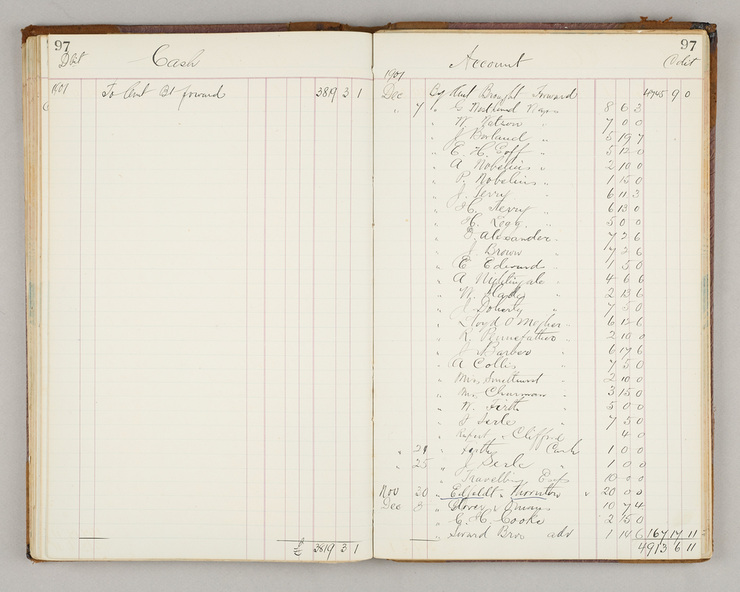 97
Dbt Cash
1907 To Amt Bt forward 3819 3 1
£ 3819 3 1
97
Account Credit
1907
Dec By Amt Brought Forward 4745 9 0
" 7 " G Westlund Wages 8 6 3
" W. Watson " 7 0 0
" J Borland " 5 19 7
" E. H. Goff " 5 12 0
" A Nobelius " 2 10 0
" P. Nobelius " 1 15 0
" J " 6 11 3
" H. " 6 13 0
" H. Legg " 5 0 0
" Alexander " 7 2 6
" J Brown " 7 2 6
" E. Edward " 1 5 0
" A Nightingale " 4 6 6
" W. " 2 13 6
" J Doherty " 7 5 0
" Lloyd O " 6 12 6
" R. Pennefather " 2 10 0
" J Barber " 6 17 6
" A Collis " 7 5 0
" Mrs " 2 10 0
" Mr. Chapman " 3 15 0
" W. Firth " 5 0 0
" J Serle " 7 5 0
" Rupert & Clifford 4 0
" 21 " Cash 1 0 0
" 25 " J Serle " 1 0 0
" Travelling Exps 10 0 0
Nov 30 " Edfeldt & Thornton 20 0 0
Dec 3 " Glover & 10 7 4
" G. H. Cooke 2 15 0
" Bros adv 1 14 6 167 17 11
4913 6 11